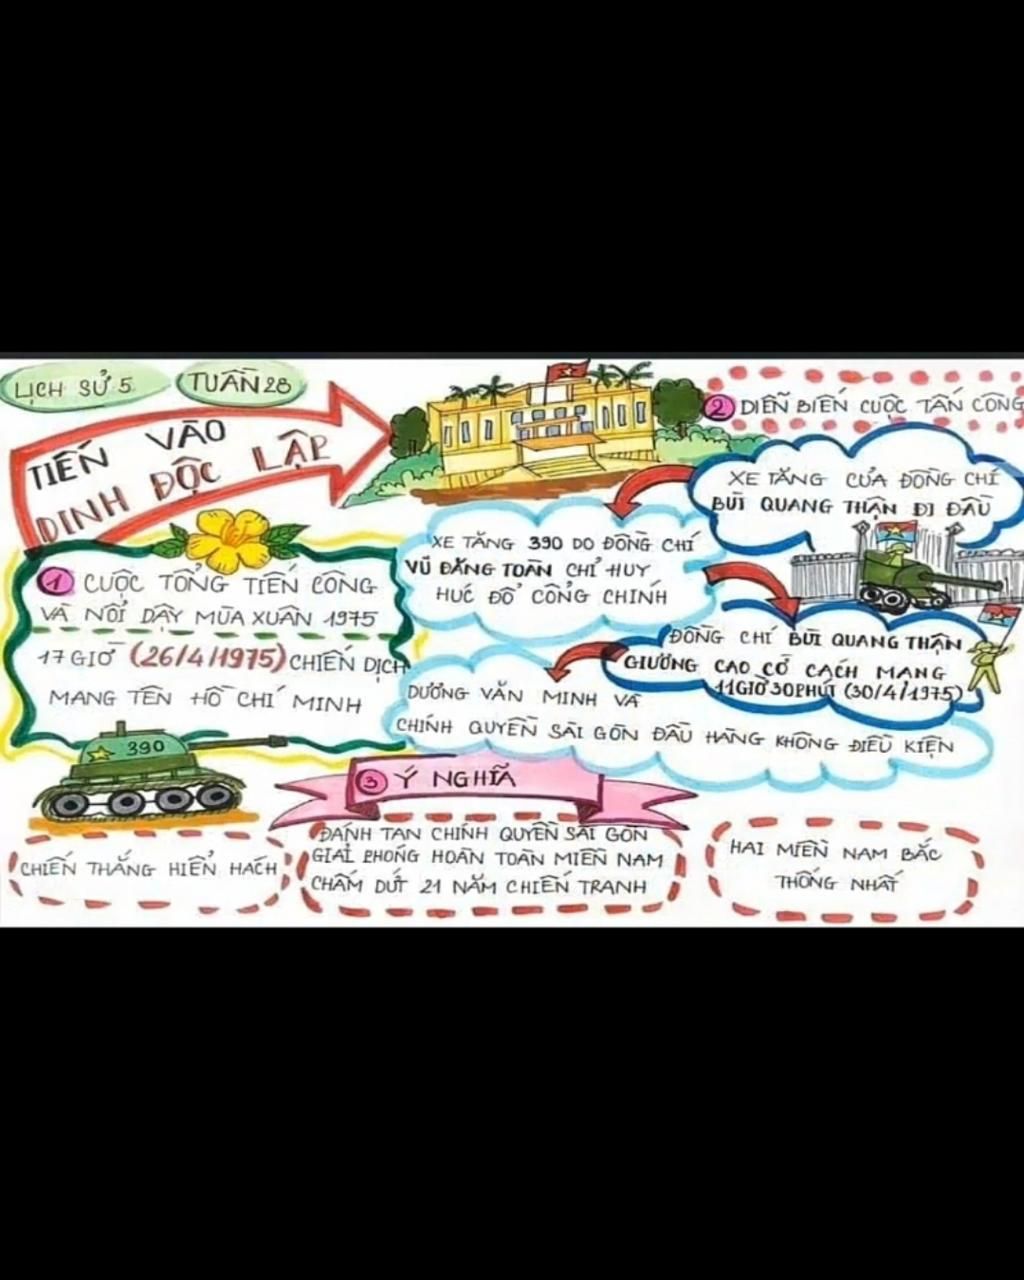 LỊCH SỬ 5
TUẦN 28
TIẾN VÀO
DINH ĐỘC LẬP
1 CUỘC TỔNG TIẾN CÔNG
VÀ NỔI DẬY MÙA XUÂN 1975
17 GIỜ (26/4/1975) CHIẾN DỊCH
MANG TÊN HỒ CHÍ MINH
390
2 DIỄN BIẾN CUỘC TẤN CÔNG
XE TĂNG CỦA ĐỒNG CHÍ
BÙI QUANG THẬN ĐI ĐẦU
XE TĂNG 390 DO ĐỒNG CHÍ
VŨ ĐĂNG TOÀN CHỈ HUY
HÚC ĐỔ CỔNG CHÍNH
ĐỒNG CHÍ BÙI QUANG THẬN
GIƯƠNG CAO CỜ CÁCH MẠNG
11GIỜ 30PHÚT (30/4/1975)
DƯƠNG VĂN MINH VÀ
CHÍNH QUYỀN SÀI GÒN ĐẦU HÀNG KHÔNG ĐIỀU KIỆN
3 Ý NGHĨA
CHIẾN THẮNG HIỂN HÁCH
ĐÁNH TAN CHÍNH QUYỀN SÀI GÒN
GIẢI PHÓNG HOÀN TOÀN MIỀN NAM
CHẤM DỨT 21 NĂM CHIẾN TRANH
HAI MIỀN NAM BẮC
THỐNG NHẤT